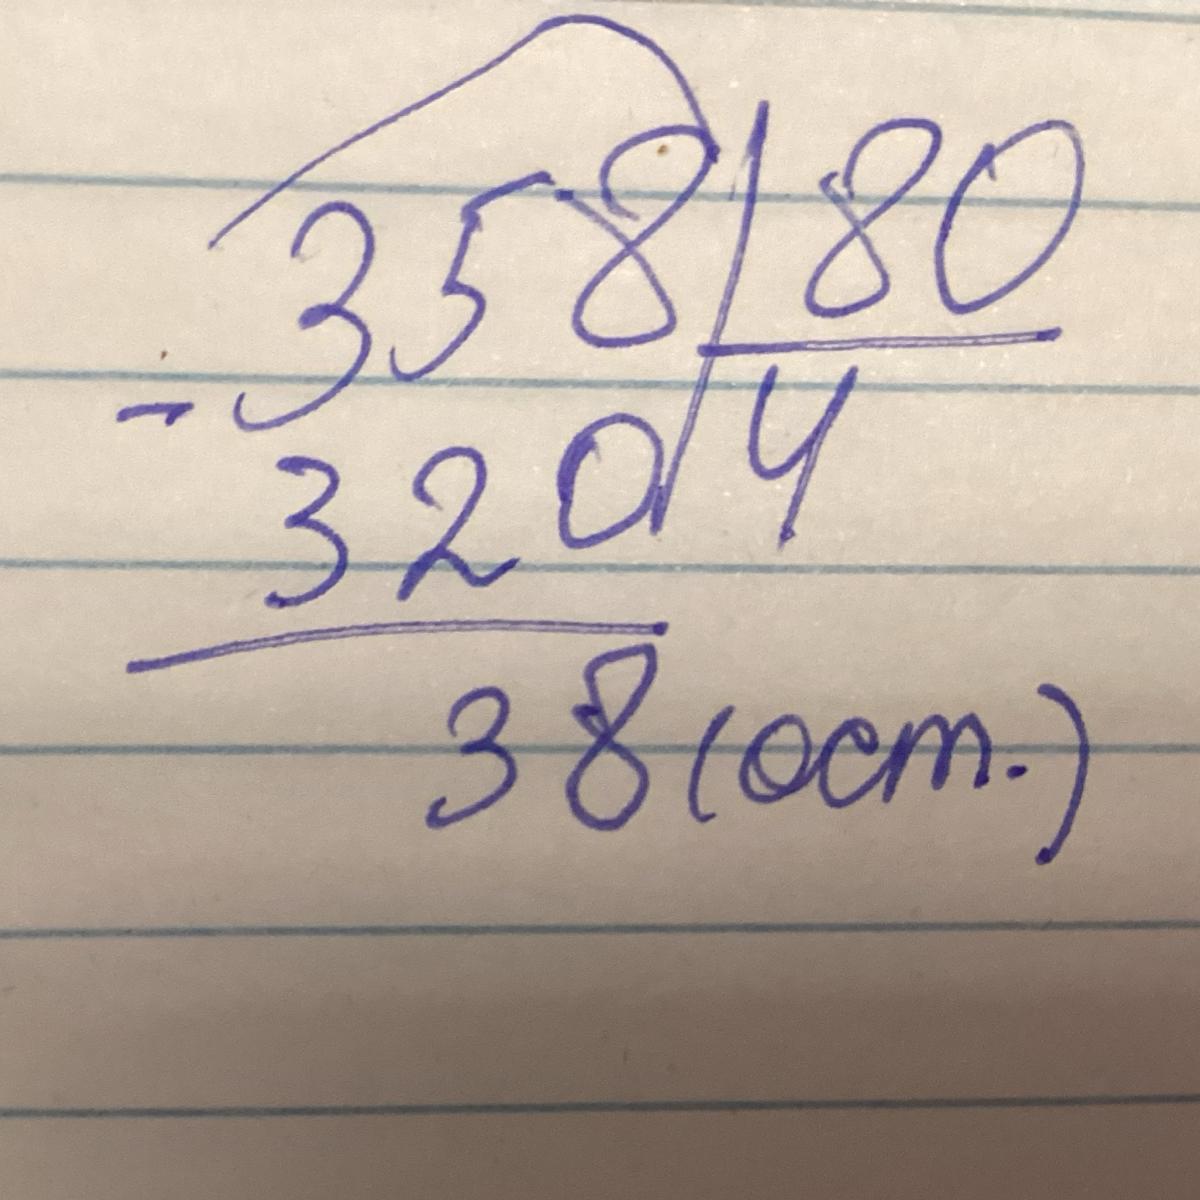 358|80
-320|4
38(ост.)